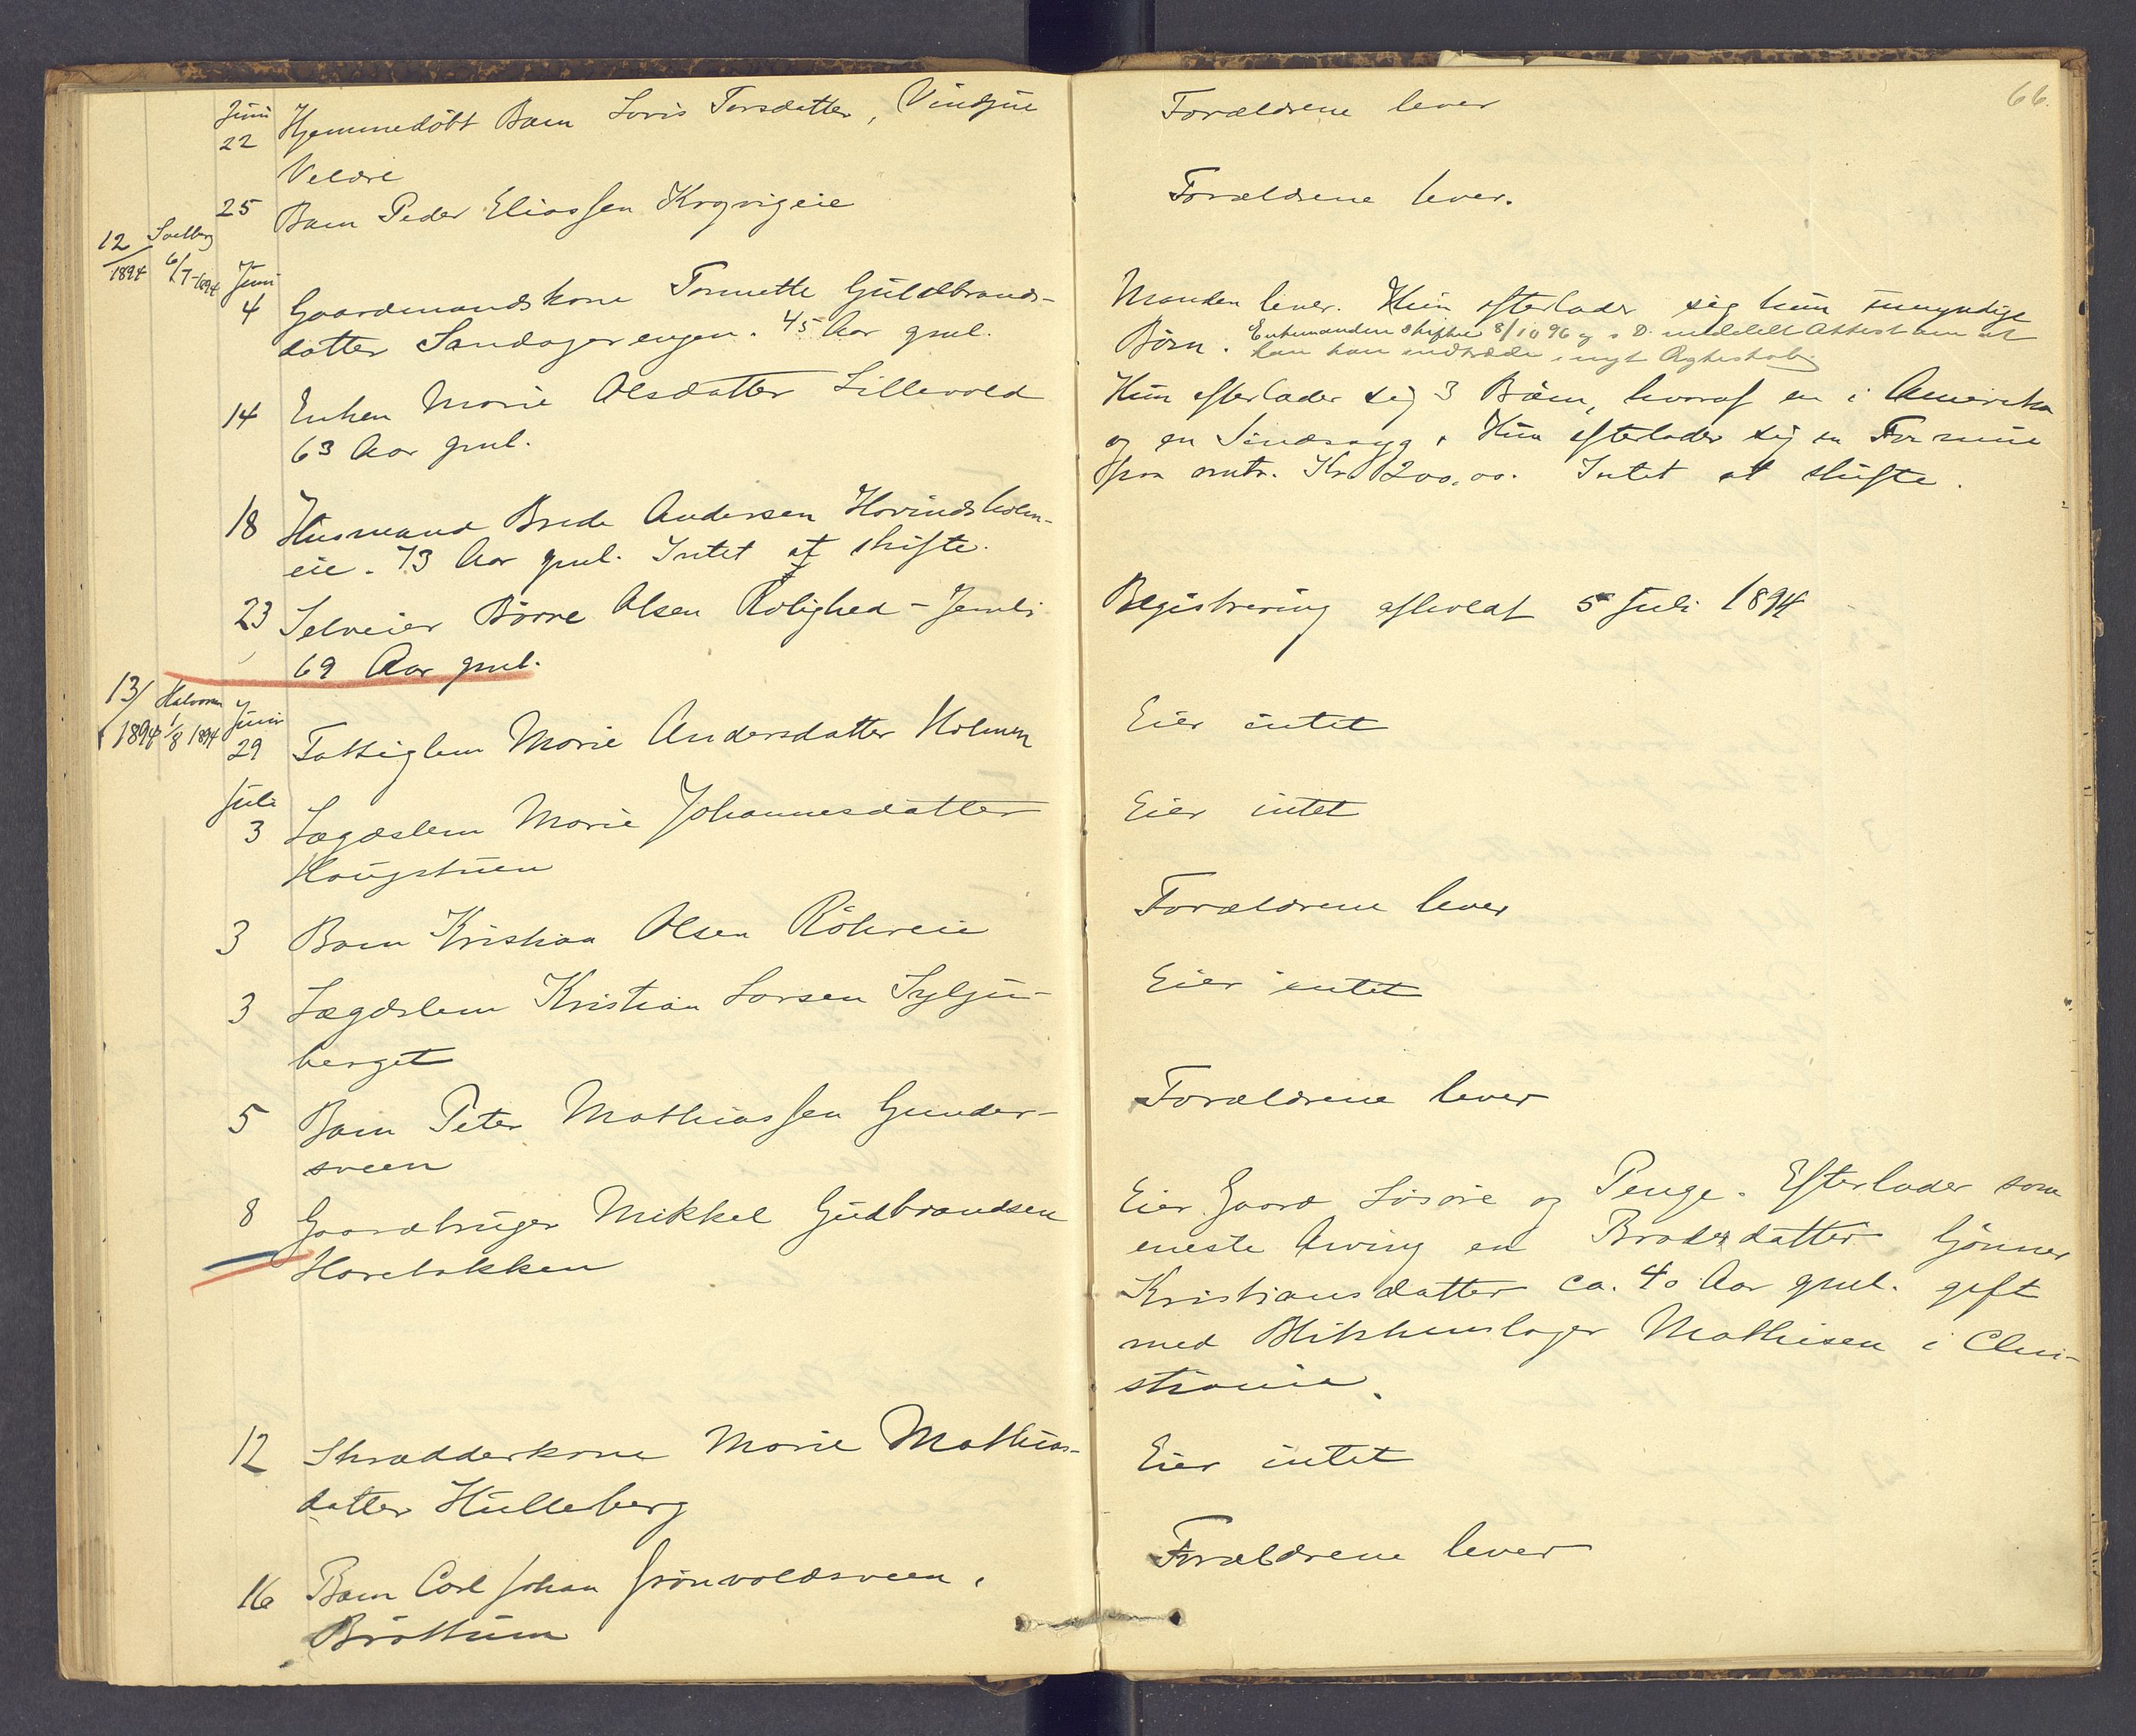 66.
Juni
22 Hjemmedöbt Barn Lovis Torsdatter, Vindju
Veldre
25 Barn Peder Eliassen Krogvigeie
12/1894 6/7-1894
Juni
4 Gaardmandskone Tonnette Guldbrands-
datter Sandagerengen. 45 Aar gml.
14 Enken Marie Olsdatter Lillevold
63 Aar gml.
18 Husmand Brede Andersen Hovindsholm-
eie. 73 Aar gml. Intet at skifte.
23 Selveier Börre Olsen Rolighed - Jemli
69 Aar gml.
13/1894 Halvorsen 1/8 1894
Juni
29 Fattiglem Marie Andersdatter Holmen
Juli
3 Lægdslem Marie Johannesdatter
Haugstuen
3 Barn Kristian Olsen Röhreie
3 Lægdslem Kristian Larsen Sylju-
berget
5 Barn Peter Mathiassen Gunder-
sveen
8 Gaardbruger Mikkel Gudbrandsen
Harebakken
12 Skrædderkone Marie Mathias-
datter Hulleberg
16 Barn Carl Johan Grönvoldsveen,
Bröttum
Forældrene lever
Forældrene lever.
Manden lever. Hun efterlader sig kun umyndige
Börn. Enkemanden skiftet 8/10 96 og s. D. meddelt Attest om at
han kan indtræde i nyt Ægteskab.
Hun efterlader sig 3 Börn, hvoraf en i Amerika
og en Sindssyg. Hun efterlader sig en Formue
paa omtr. Kr 1200.00. Intet at skifte.
Registrering afholdt 5 Juli 1894
Eier intet
Eier intet
Forældrene lever
Eier intet
Forældrene lever
Eier Gaard Lösöre og Penge. Efterlader som
eneste Arving en Brodersdatter Gönner
Kristiansdatter ca. 40 Aar gml. gift
med Blikkenslager Mathisen i Chri-
stiania.
Eier intet
Forældrene lever